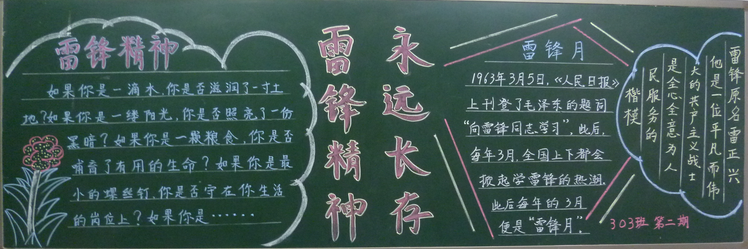 雷锋精神
如果你是一滴水,你是否滋润了一寸土
地?如果你是一缕阳光,你是否照亮了一份
黑暗?如果你是一颗粮食,你是否
哺育了有用的生命?如果你是最
小的螺丝钉,你是否守在你生活
的岗位上?如果你是……
雷锋精神
永远长存
雷锋月
1963年3月5日,《人民日报》
上刊登了毛泽东的题词
“向雷锋同志学习”,此后,
每年3月,全国上下都会
掀起学雷锋的热潮,
此后每年的3月
便是“雷锋月”。
雷锋原名雷正兴
他是一位平凡而伟
大的共产主义战士
是全心全意为人
民服务的
楷模
303班 第二期